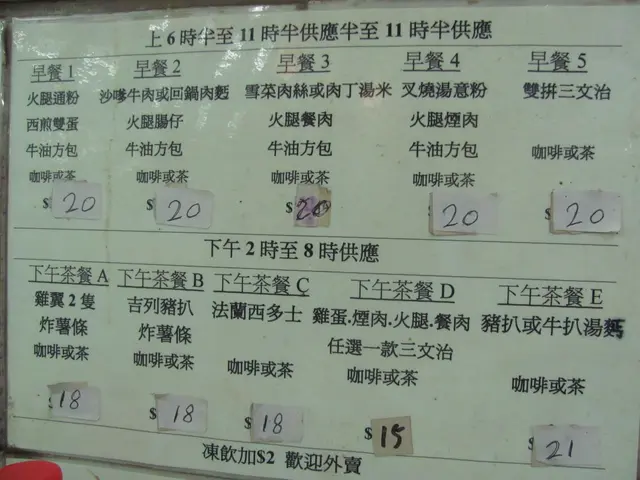 上 6 時半至 11 時半供應半至 11 時半供應
早餐 1 早餐 2 早餐 3 早餐 4 早餐 5
火腿通粉 沙嗲牛肉或回鍋肉麵 雪菜肉絲或肉丁湯米 叉燒湯意粉 雙拼三文治
西煎雙蛋 火腿腸仔 火腿餐肉 火腿煙肉
牛油方包 牛油方包 牛油方包 牛油方包 咖啡或茶
咖啡或茶 咖啡或茶 咖啡或茶 咖啡或茶
$20 $20 $20 20 $20
下午 2 時至 8 時供應
下午茶餐 A 下午茶餐 B 下午茶餐 C 下午茶餐 D 下午茶餐 E
雞翼 2 隻 吉列豬扒 法蘭西多士 雞蛋.煙肉.火腿.餐肉 豬扒或牛扒湯麵
炸薯條 炸薯條 任選一款三文治
咖啡或茶 咖啡或茶 咖啡或茶 咖啡或茶 咖啡或茶
18 $18 $18 $15 $21
凍飲加$2 歡迎外賣